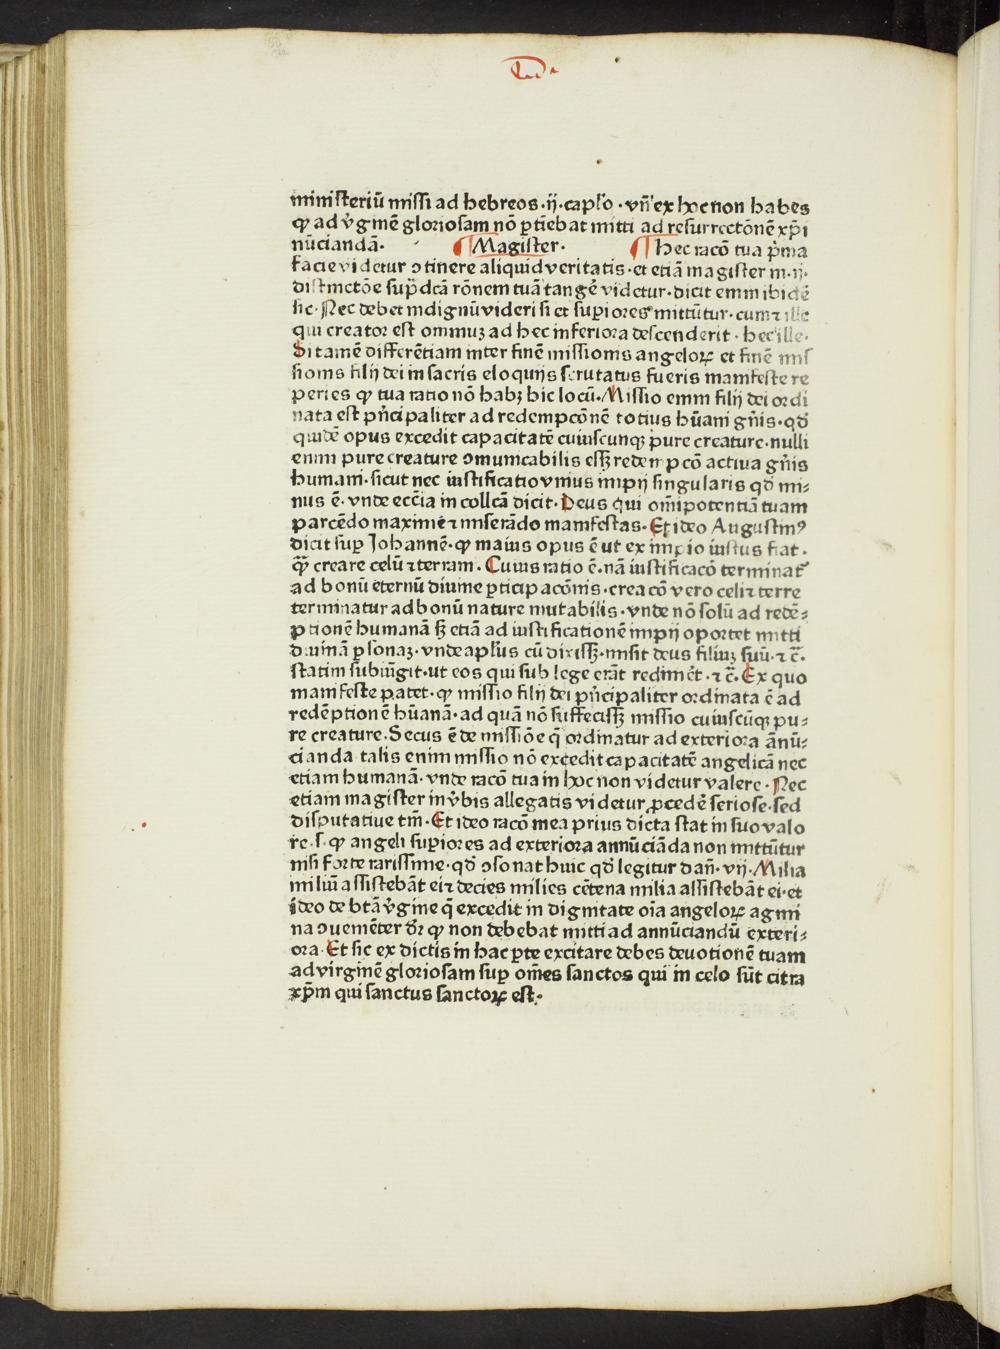 ministeriū missi ad hebreos · ij · capl̄o · vn̄ ex hoc non habes
ꝙ ad v̓ginē gloriosam nō ꝑtiēbat mitti ad resurrectōnē xp̄i
nūciandā · ¶ Magister · ¶ hec racō tua pͥma
facie videtur ↄtinere aliquid veritatis · et etiā magister in · ij ·
distinctōe sup̄dcā rōnem tuā tangē videtur · dicit enim ibidē
sic · Nec debet indignū videri si et suꝑiores mittūtur · cum ⁊ ille
qui creator est omniuꝫ ad hec inferiora descenderit · hec ille ·
Si tamē differētiam inter finē missionis angeloꝝ et finē mis
sionis filij dei in sacris eloquijs scrutatus fueris manifeste re
peries ꝙ tua ratio nō habꝫ hic locū · Missio enim filij dei ordi
nata est pͥncipaliter ad redempcōnē totius hūani gn̄is · qd̄
quidē opus excedit capacitatē cuiuscunqꝫ pure creature · nulli
enim pure creature ↄmunicabilis essꝫ redempcō actiua gn̄is
humani · sicut nec iustificatio vnius impij singularis qd̄ mi⸗
nus ē · vnde ecc̄ia in collcā dicit · Deus qui om̄ipotentiā tuam
parcēdo maxime ⁊ miserādo manifestas · Et ideo Augustinꝰ
dicit suꝑ Johannē · ꝙ maius opus ē ut ex impio iustus fiat ·
qͣꝫ creare celū ⁊ terram · Cuius ratio ē · nā iustificacō terminat᷑
ad bonū eternū diuine ꝑticipacōnis · creacō vero celi ⁊ terre
terminatur ad bonū nature mutabilis · vnde nō solū ad redē⸗
ptionē humanā sꝫ etiā ad iustificationē impij oportet mitti
diuinā ꝑsonaꝫ · vnde apl̄us cū dixissꝫ · misit deus filiuꝫ suū · ⁊ c̄ ·
statim subiūgit · ut eos qui sub lege erāt redimēt · ⁊ c̄ · Ex quo
manifeste patet · ꝙ missio filij dei pͥncipaliter ordinata ē ad
redēptionē hūanā · ad quā nō suffecissꝫ missio cuiuscūqꝫ pu⸗
re creature · Secus ē de missiōe q̄ ordinatur ad exteriora ānū⸗
cianda talis enim missio nō excedit capacitatē angelicā nec
etiam humanā · vnde racō tua in hoc non videtur valere · Nec
etiam magister in v̓bis allegatis videtur ꝓcedē seriose · sed
disputatiue tm̄ · Et ideo racō mea prius dicta stat in suo valo
re · s · ꝙ angeli suꝑiores ad exteriora annūciāda non mittūtur
nisi forte rarissime · qd̄ ↄsonat huic qd̄ legitur dan̄ · vij · Milia
miliū assistebāt ei ⁊ decies milies cētena milia assistebāt ei · et
ideo de btā v̓gine q̄ excedit in dignitate oīa angeloꝝ agmi
na ↄueniēter dr̄ ꝙ non debebat mitti ad annūciandū exteri⸗
ora · Et sic ex dictis in hac ꝑte excitare debes deuotionē tuam
ad virginē gloriosam suꝑ om̄es sanctos qui in celo sūt citra
xp̄m qui sanctus sanctoꝝ est ·